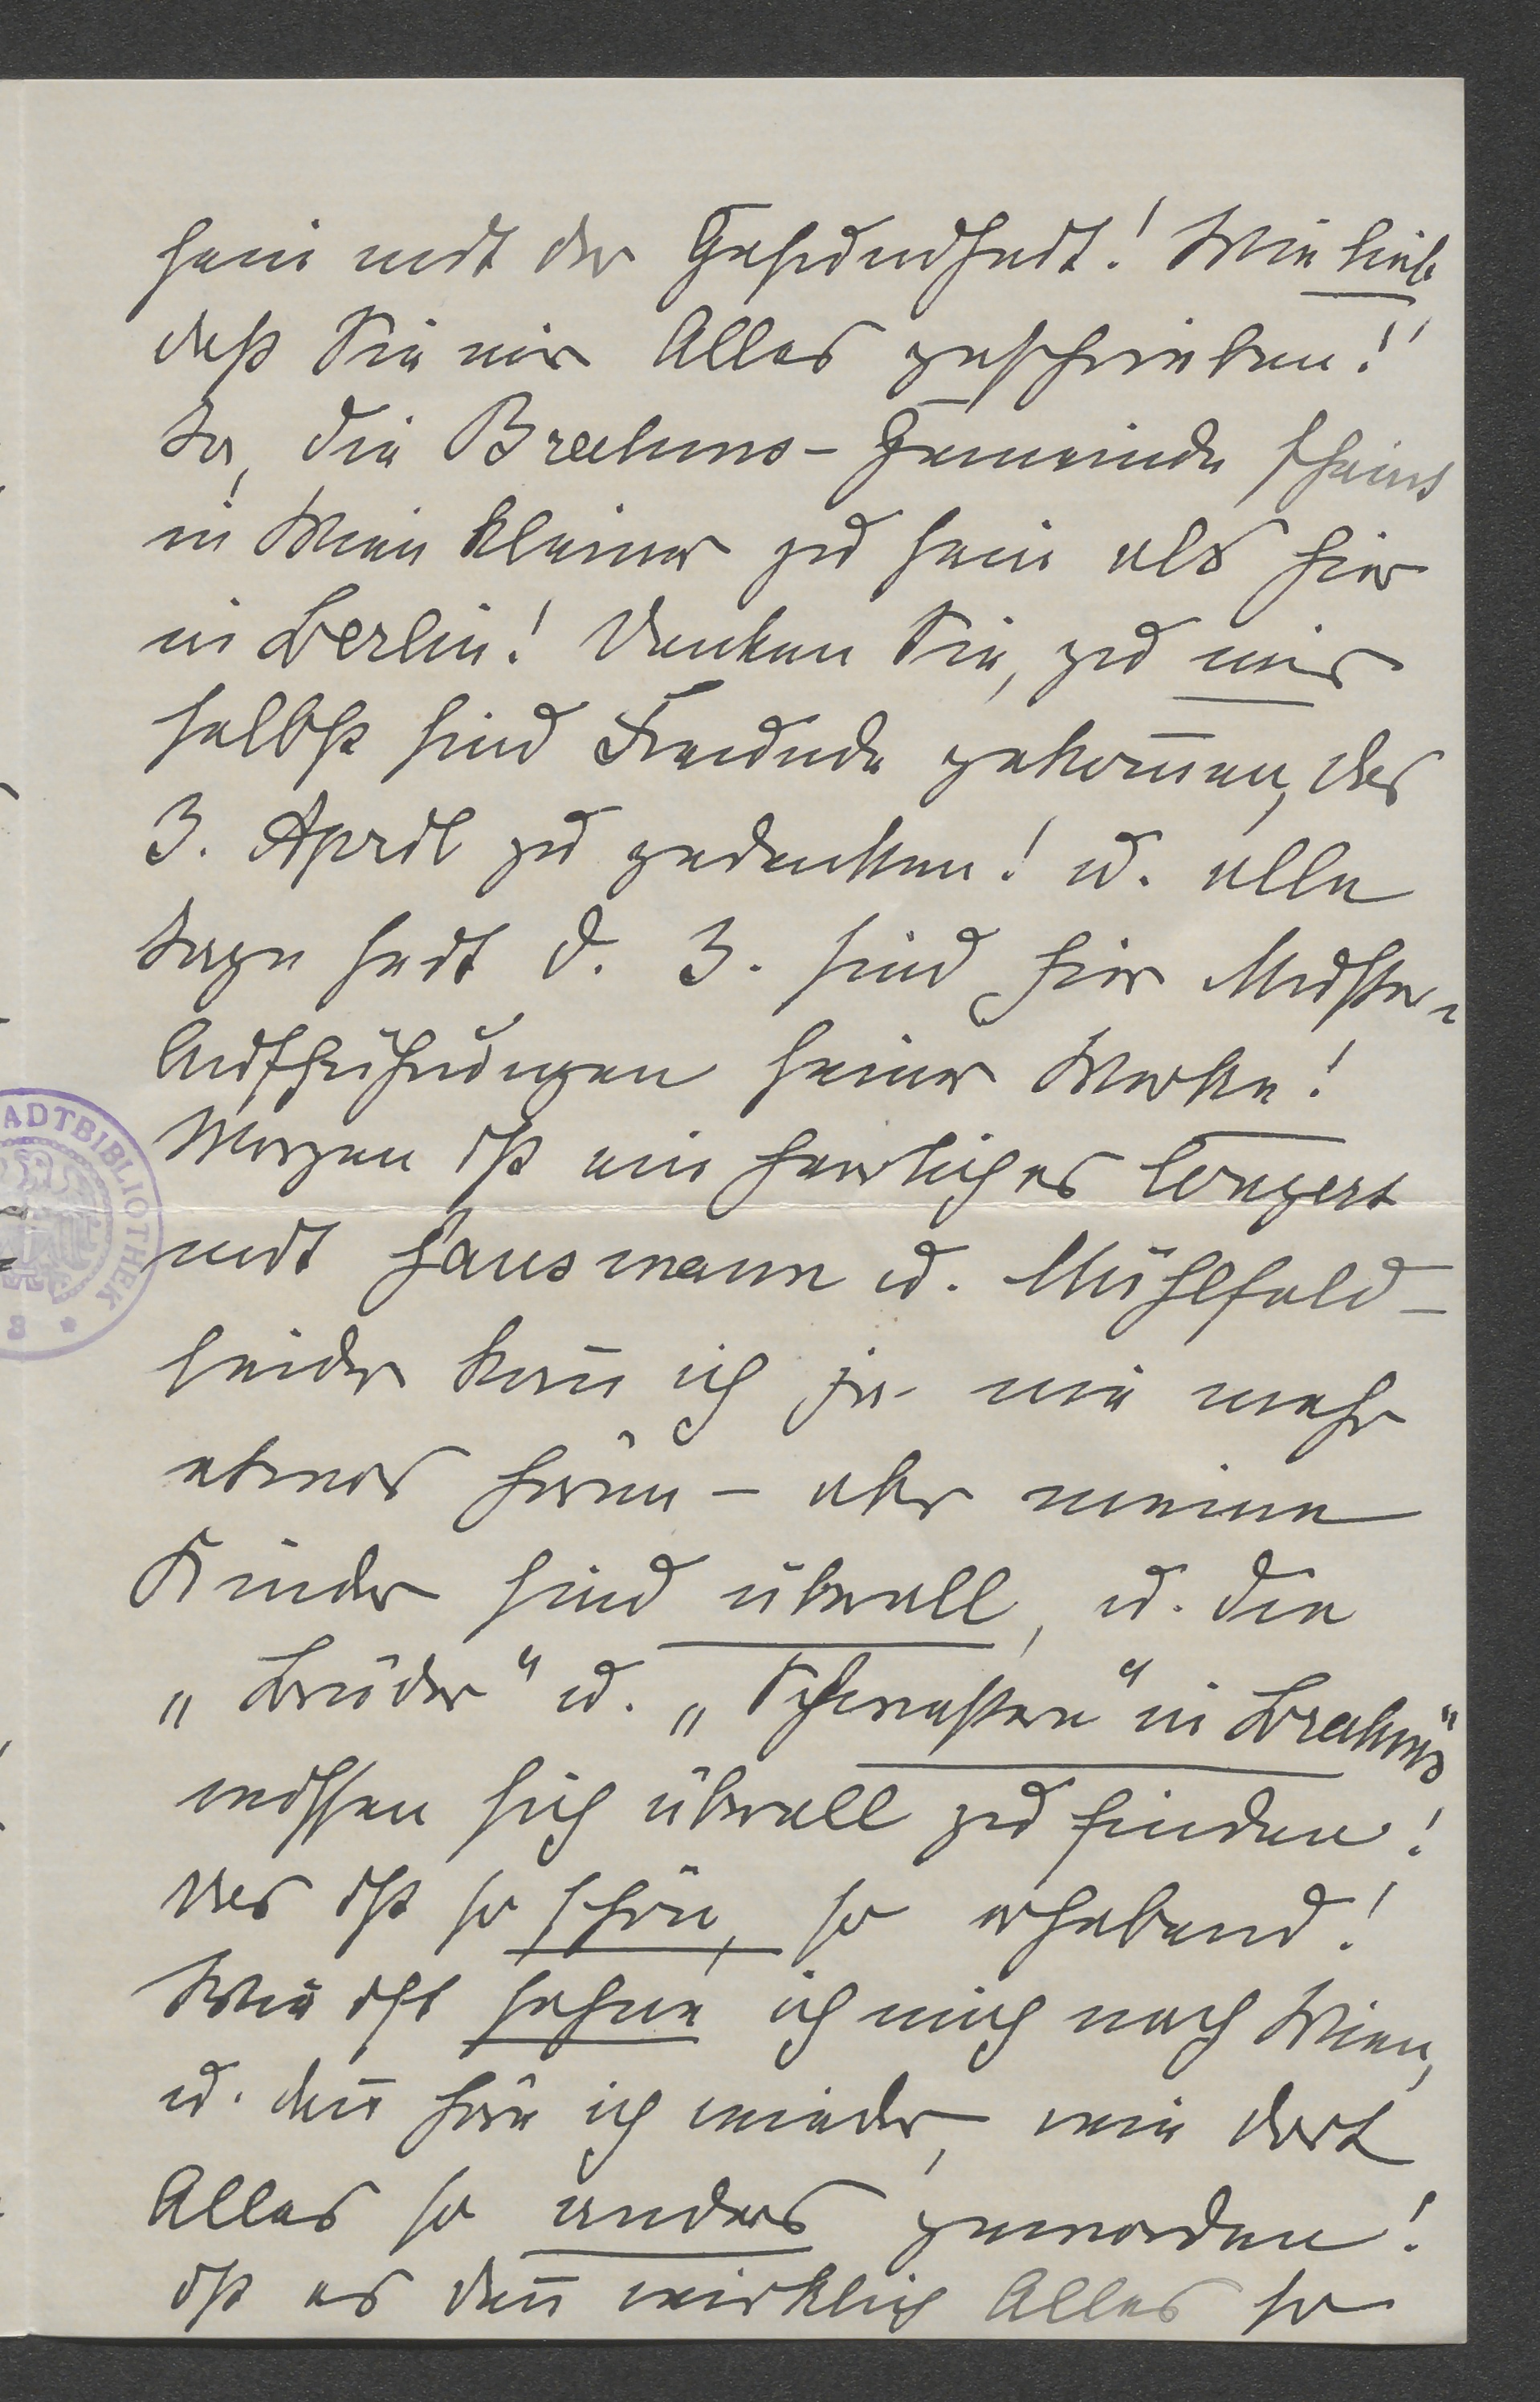 sein mit der Gesundheit! Wie lieb
daß Sie mir Alles geschrieben!
Ja, die Brahms-Gemeinde scheint
in Wien kleiner zu sein als hier
in Berlin! Denken Sie, zu mir
selbst sind Freunde gekom̄en, des
3. April zu gedenken! u. alle
Tage seit d. 3. sind hier Muster-
Aufführungen seiner Werke!
Morgen ist ein herrliches Conzert
mit Hausmann u. Mühlfeld –
leider kan̄ ich ja nie mehr
etwas hören – aber meine
Kinder sind überall, u. die
„Brüder“ u. „Schwestern“ in Brahms“
wissen sich überall zu finden!
Das ist so schön, so erhebend!
Wie oft sehne ich mich nach Wien,
u. dan̄ höre ich wieder, wie dort
Alles so anders geworden!
Ist es den̄ wirklich Alles so
ADTBIBLIOTHEK